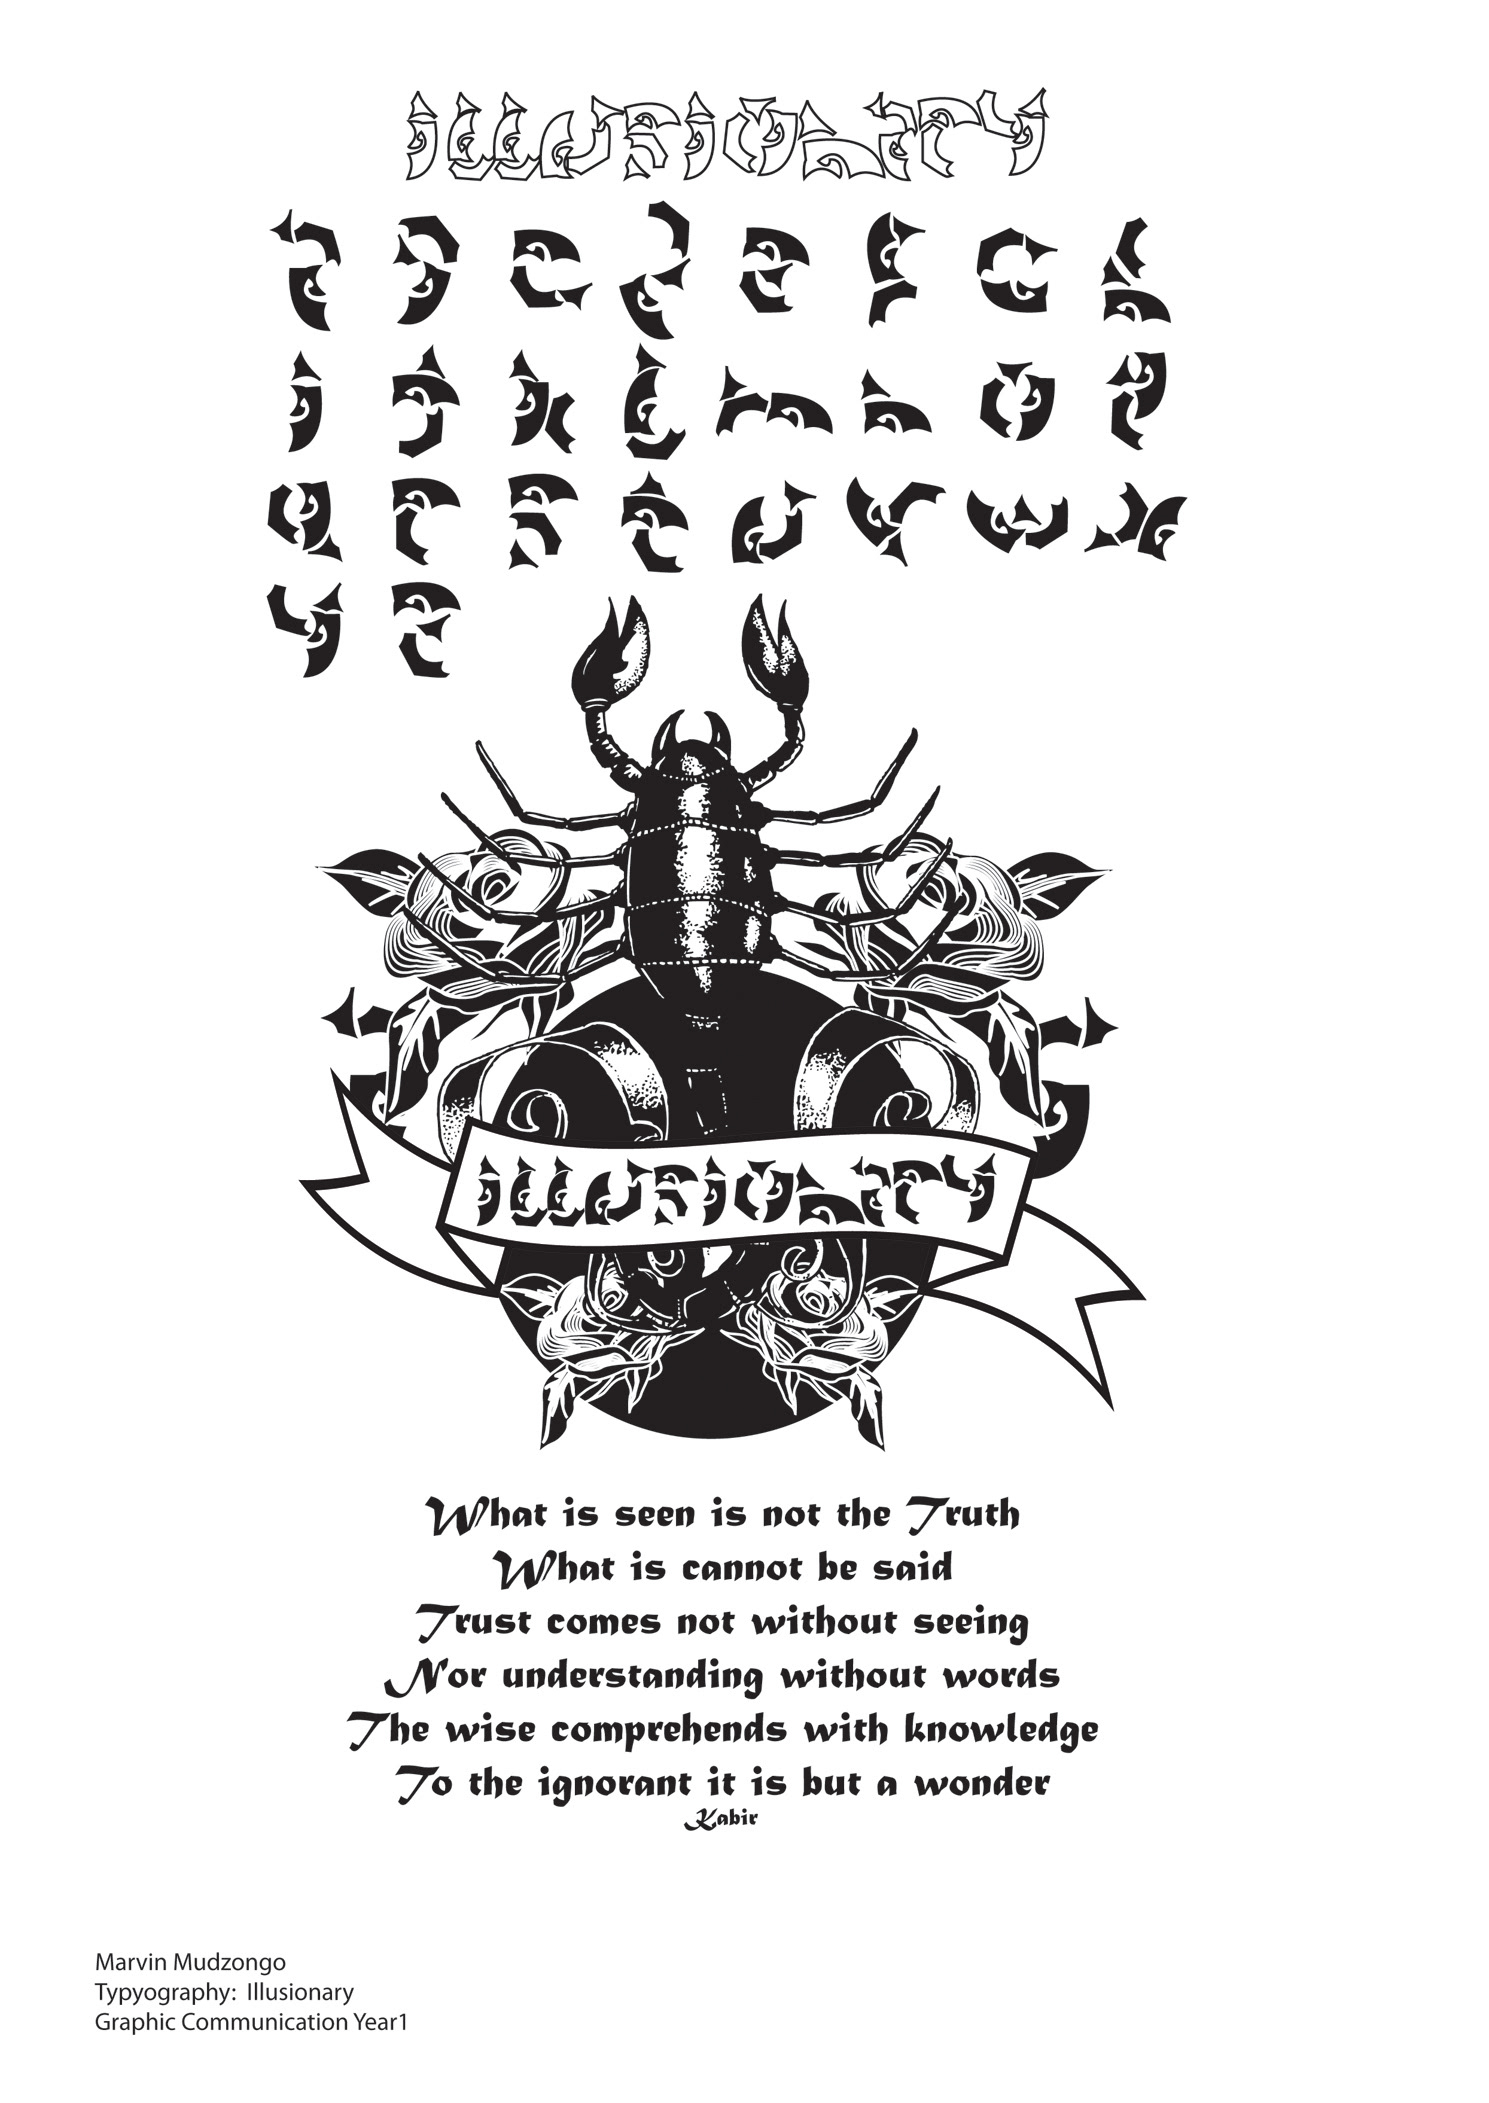 illusionary
a b c d e f g h
i j k l m n o p
q r s t u v w x
y z
illusionary
What is seen is not the Truth
What is cannot be said
Trust comes not without seeing
Nor understanding without words
The wise comprehends with knowledge
To the ignorant it is but a wonder
Kabir
Marvin Mudzongo
Typyography:  Illusionary
Graphic Communication Year1